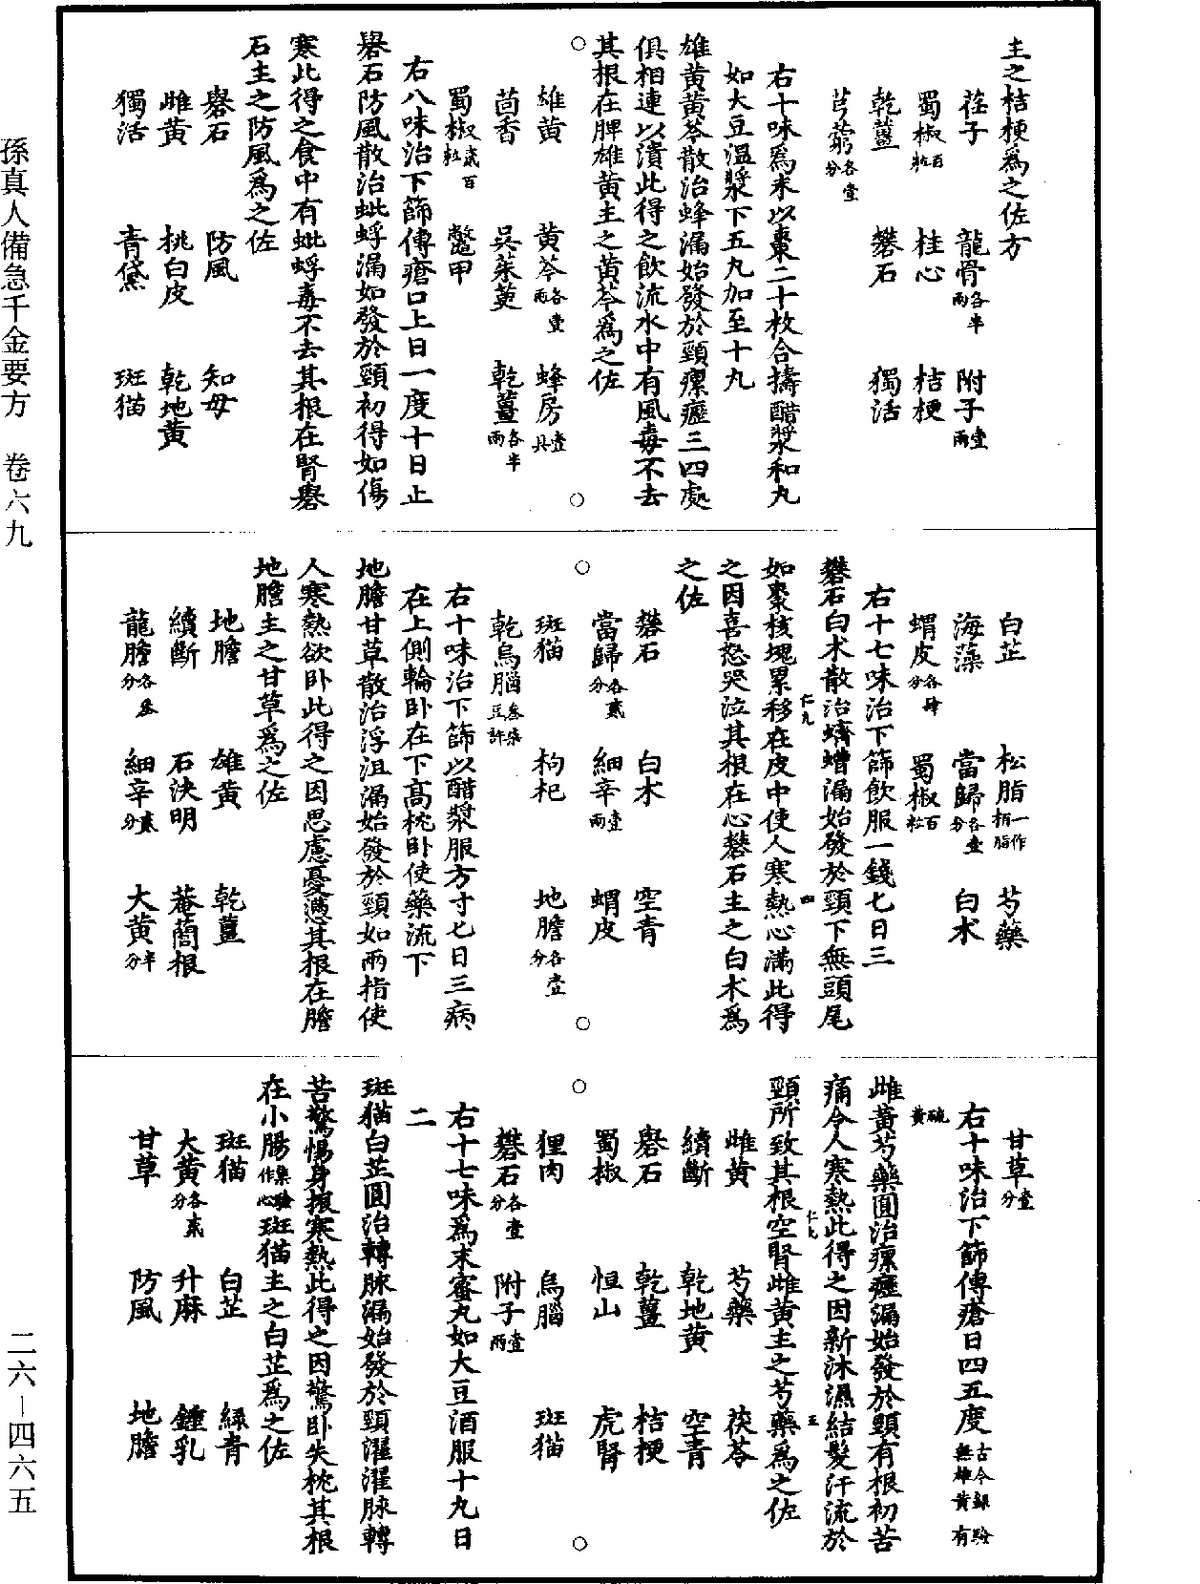 主之桔梗為之佐方
荏子 龍骨各半兩 附子壹兩
蜀椒百粒 桂心 桔梗
乾薑 礬石 獨活
芎藭各壹分
右十味為末以棗二十枚合擣醋漿和丸
如大豆溫漿下五丸加至十丸
雄黃黃芩散治蜂漏始發於頸瘰癧三四處
俱相連以潰此得之飲流水中有風毒不去
其根在脾雄黃主之黃芩為之佐
雄黃 黃芩各壹兩 蜂房壹具
茴香 吳茱萸 乾薑各半兩
蜀椒貳百粒 鱉甲
右八味治下篩傅瘡口上日一度十日止
礜石防風散治蚍蜉漏如發於頸初得如傷
寒此得之食中有蚍蜉毒不去其根在腎礜
石主之防風為之佐
礜石 防風 知母
雌黃 桃白皮 乾地黃
獨活 青黛 斑猫
白芷 松脂一作柏脂 芍藥
海藻 當歸各壹分 白朮
蝟皮各肆分 蜀椒百粒
右十七味治下篩飲服一錢匕日三
礬石白朮散治蠐螬漏始發於頸下無頭尾
如棗核塊累移在皮中使人寒熱心滿此得
之因喜怒哭泣其根在心礬石主之白朮為
之佐
礬石 白朮 空青
當歸各貳分 細辛壹兩 蝟皮
斑猫 枸杞 地膽各壹分
乾烏腦叁柒豆許
右十味治下篩以醋漿服方寸匕日三病
在上側輪臥在下高枕臥使藥流下
地膽甘草散治浮沮漏始發於頸如兩指使
人寒熱欲臥此得之因思慮憂懣其根在膽
地膽主之甘草為之佐
地膽 雄黃 乾薑
續斷 石決明 菴䕡根
龍膽各叁分 細辛貳分 大黃半分
甘草壹分
右十味治下篩傅瘡日四五度古今錄驗無雄黃有
硫黃
雌黃芍藥圓治瘰癧漏始發於頸有根初苦
痛令人寒熱此得之因新沐濕結髮汗流於
頸所致其根空腎雌黃主之芍藥為之佐
雌黃 芍藥 茯苓
續斷 乾地黃 空青
礜石 乾薑 桔梗
蜀椒 恒山 虎腎
狸肉 烏腦 斑猫
礬石各壹分 附子壹兩
右十七味為末蜜丸如大豆酒服十丸日
二
斑猫白芷圓治轉脈漏始發於頸濯濯脈轉
苦驚惕身振寒熱此得之因驚臥失枕其根
在小腸集驗作心斑猫主之白芷為之佐
斑猫 白芷 綠青
大黃各貳分 升麻 鍾乳
甘草 防風 地膽
孫真人備急千金要方 卷六九
二六—四六五